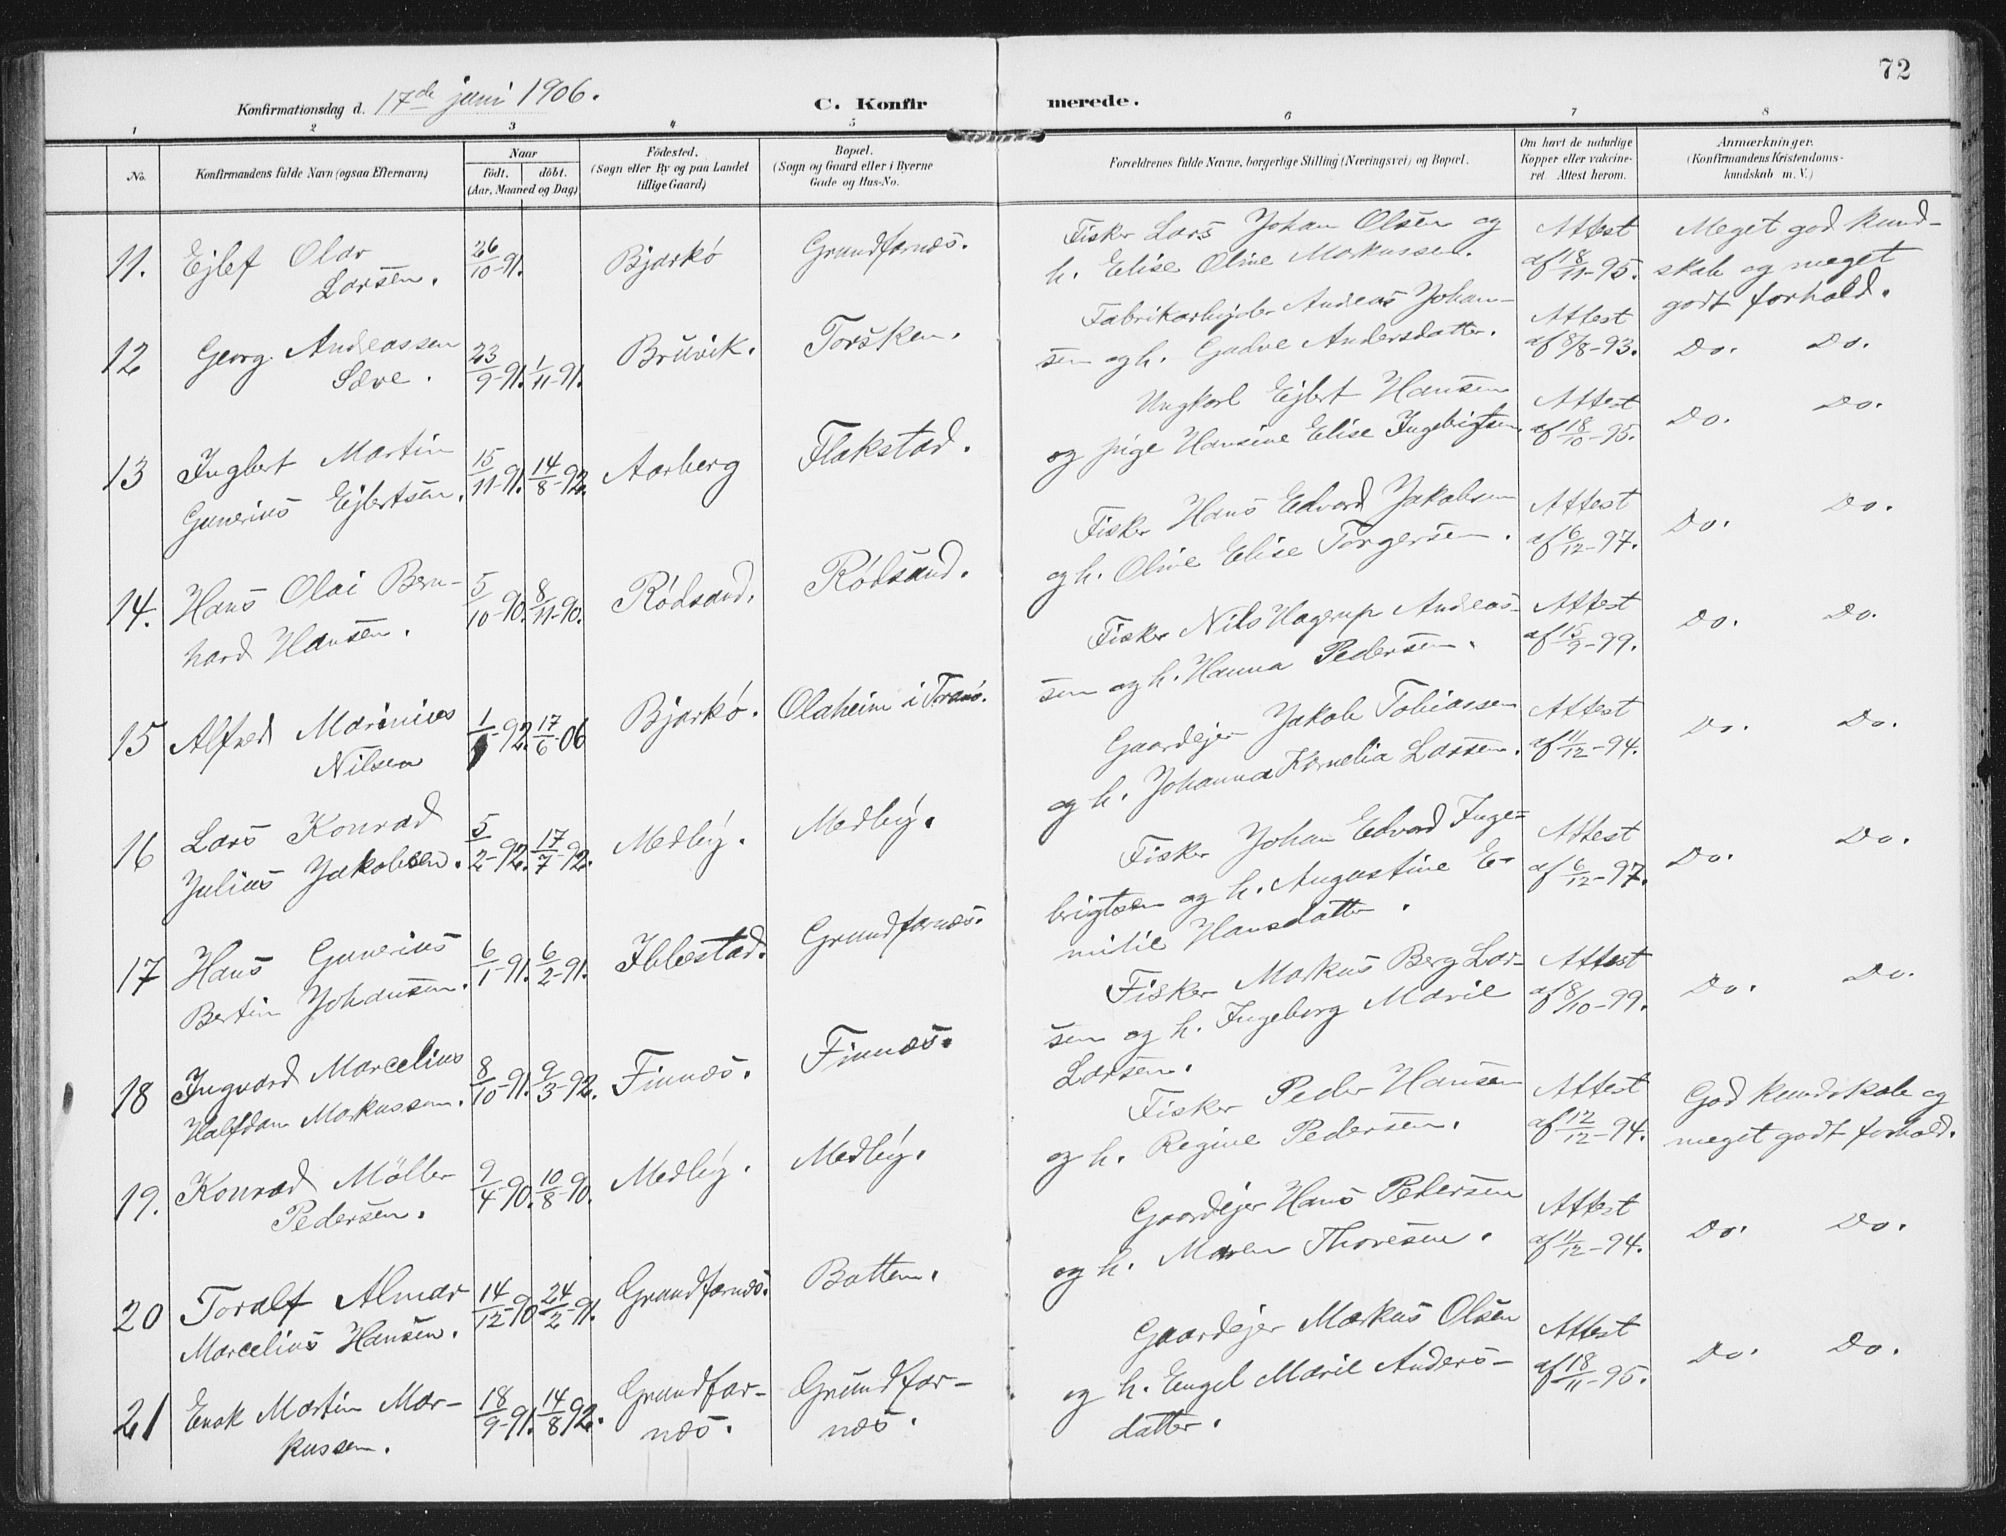 72
Konfirmationsdag d. 17de juni 1906.
C. Konfirmerede.
1 2 3 4 5 6 7 8
No.
Konfirmandens fulde Navn (ogsaa Efternavn)
Naar
födt. döbt.
(Aar, Maaned og Dag)
Födested.
(Sogn eller By og paa Landet
tillige Gaard)
Bopæl.
(Sogn og Gaard eller i Byerne
Gade og Hus-No.
Forældrenes fulde Navne, borgerlige Stilling (Næringsvei) og Bopæl.
Om havt de naturlige
Kopper eller vakcine-
ret. Attest herom.
Anmærkninger.
(Konfirmandens Kristendoms-
kundskab m. V.)
11. Ejlef Olav
Larsen.
26/10-91.
Bjarkö
Grundfarnæs.
Fisker Lars Johan Olsen og
h. Elise Oline Markussen.
Attest
af 18/11-95.
Meget god kund-
skab og meget
godt forhold.
12 Georg Andreassen
Sæve.
23/9-91. 1/11-91.
Bruvik.
Torsken.
Fabrikarbejder Andreas Johan-
sen og h. Gadve Andersdatter.
Attest
af 8/8-93.
Do. Do.
13 Ingbert Martin
Gunerius Ejlertsen.
15/11-91. 14/8-92.
Aarberg
Flakstad.
Ungkarl Ejlert Hansen
og pige Hansine Elise Ingebrigtsen.
Attest
af 18/10-95.
Do. Do.
14. Hans Olai Bern-
hard Hansen.
5/10-90. 8/11-90.
Rödsand.
Rödsand.
Fisker Hans Edvard Jakobsen
og h. Oline Elise Torgersen.
Attest
af 6/12-97.
Do. Do.
15 Alfred Marinius
Nilsen
1/1-92. 17/6-06
Bjarkö.
Olaheim i Tranö.
Fisker Nils Hagerup Andreas-
sen og h. Hanna Pedersen.
Attest
af 15/9-99.
Do. Do.
16 Lars Konrad
Julius Jakobsen.
5/2-92. 17/7-92.
Medby.
Medby.
Gaardejer Jakob Tobiassen
og h. Johanna Kornelia Larsen.
Attest
af 11/12-94.
Do. Do.
17 Hans Gunerius
Bertin Johansen.
6/1-91. 6/2-91.
Ibbestad.
Grundfarnæs.
Fisker Johan Edvard Inge-
brigtsen og h. Augustine E-
milie Hansdatter.
Attest
af 6/12-97.
Do. Do.
18 Ingvard Marcelius
Halfdan Markussen.
8/10-91. 9/3-92.
Finnæs.
Finnæs.
Fisker Markus Berg Lar-
sen og h. Ingeborg Marie
Larsen.
Attest
af 8/10-99.
Do. Do.
19. Konrad Möller
Pedersen.
9/4-90. 10/8-90.
Medby.
Medby.
Fisker Peder Hansen
og h. Regine Pedersen.
Attest
af 12/12-94.
God kundskab og
meget godt forhold.
20 Toralf Almar
Marcelius Hansen.
14/12-90 24/2-91.
Grundfarnæs.
Botten.
Gaardejer Hans Pedersen
og h. Maren Thoresen.
Attest
af 11/12-94.
Do. Do.
21 Enok Martin Mar-
kussen.
18/9-91. 14/8 92.
Grundfar-
næs.
Grundfar-
næs.
Gaardejer Markus Olsen
og h. Engel Marie Anders-
datter.
Attest
af 18/11-95.
Do. Do.